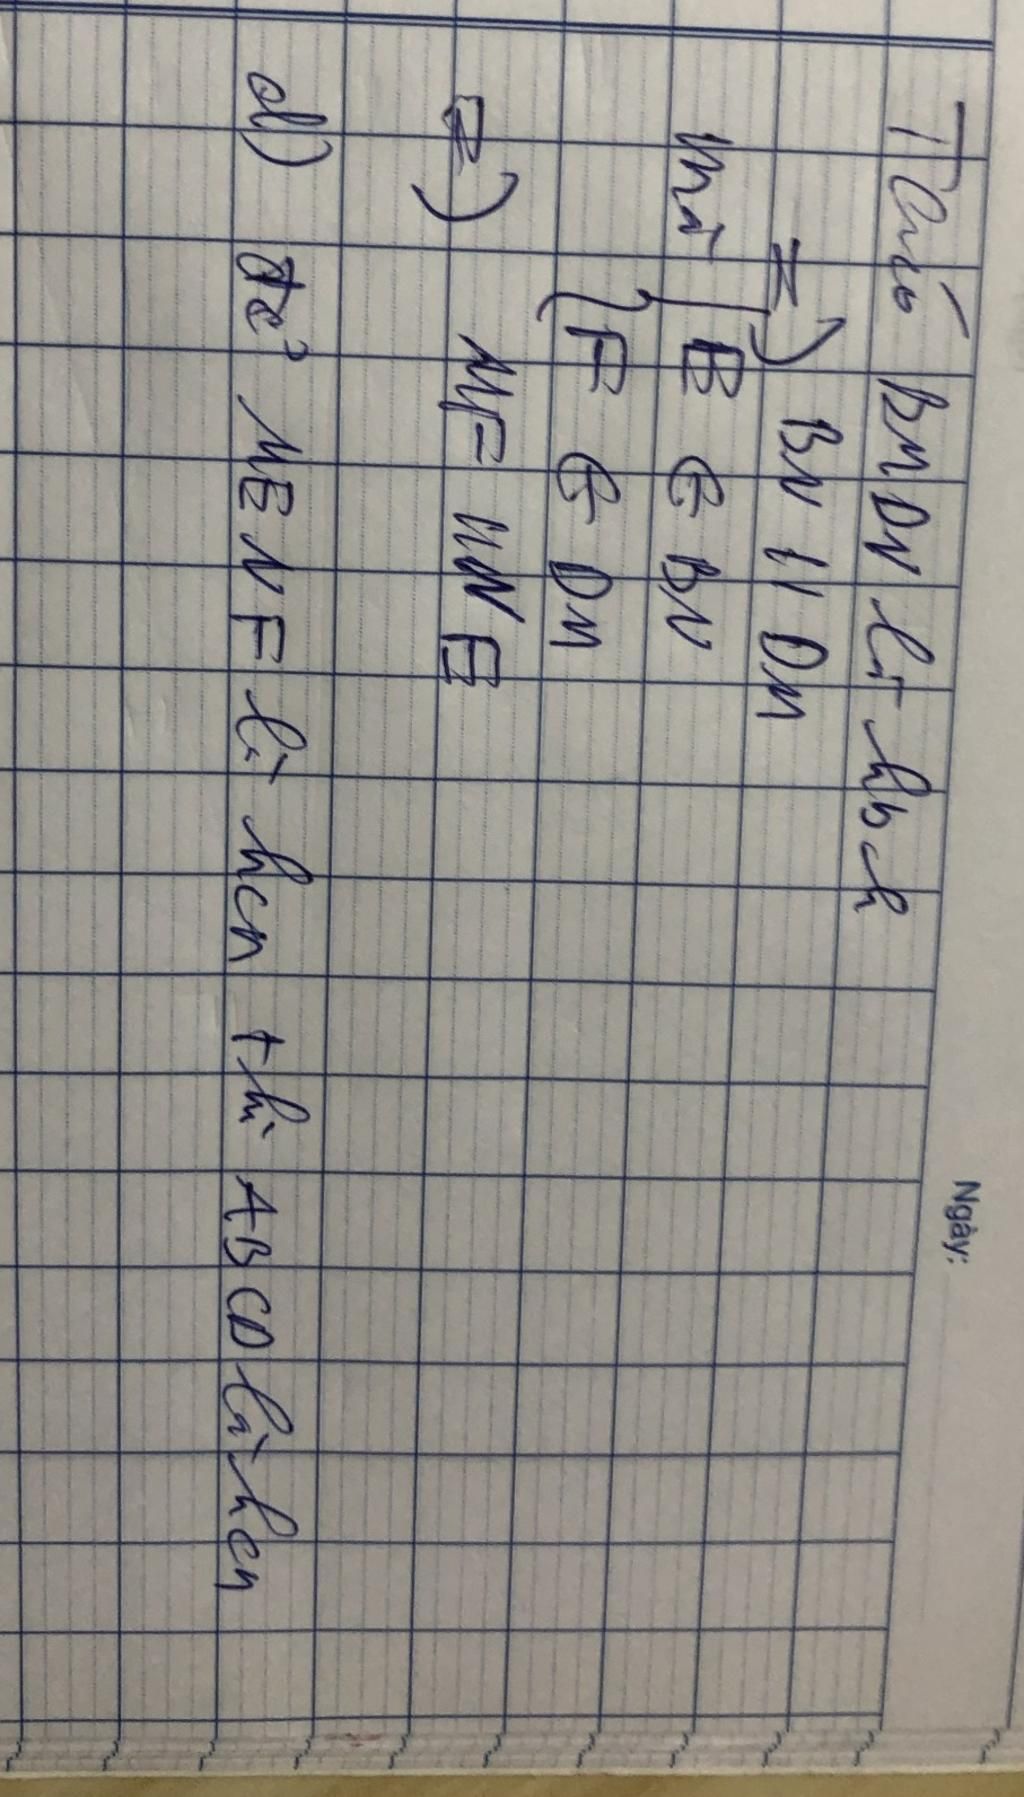 Ngày:
Ta có BMDN là hbh
=) BN // DM
mà { E ∈ BN
F ∈ DM
=) MF // NE
d) để MENF là hcn thì ABCD là hcn